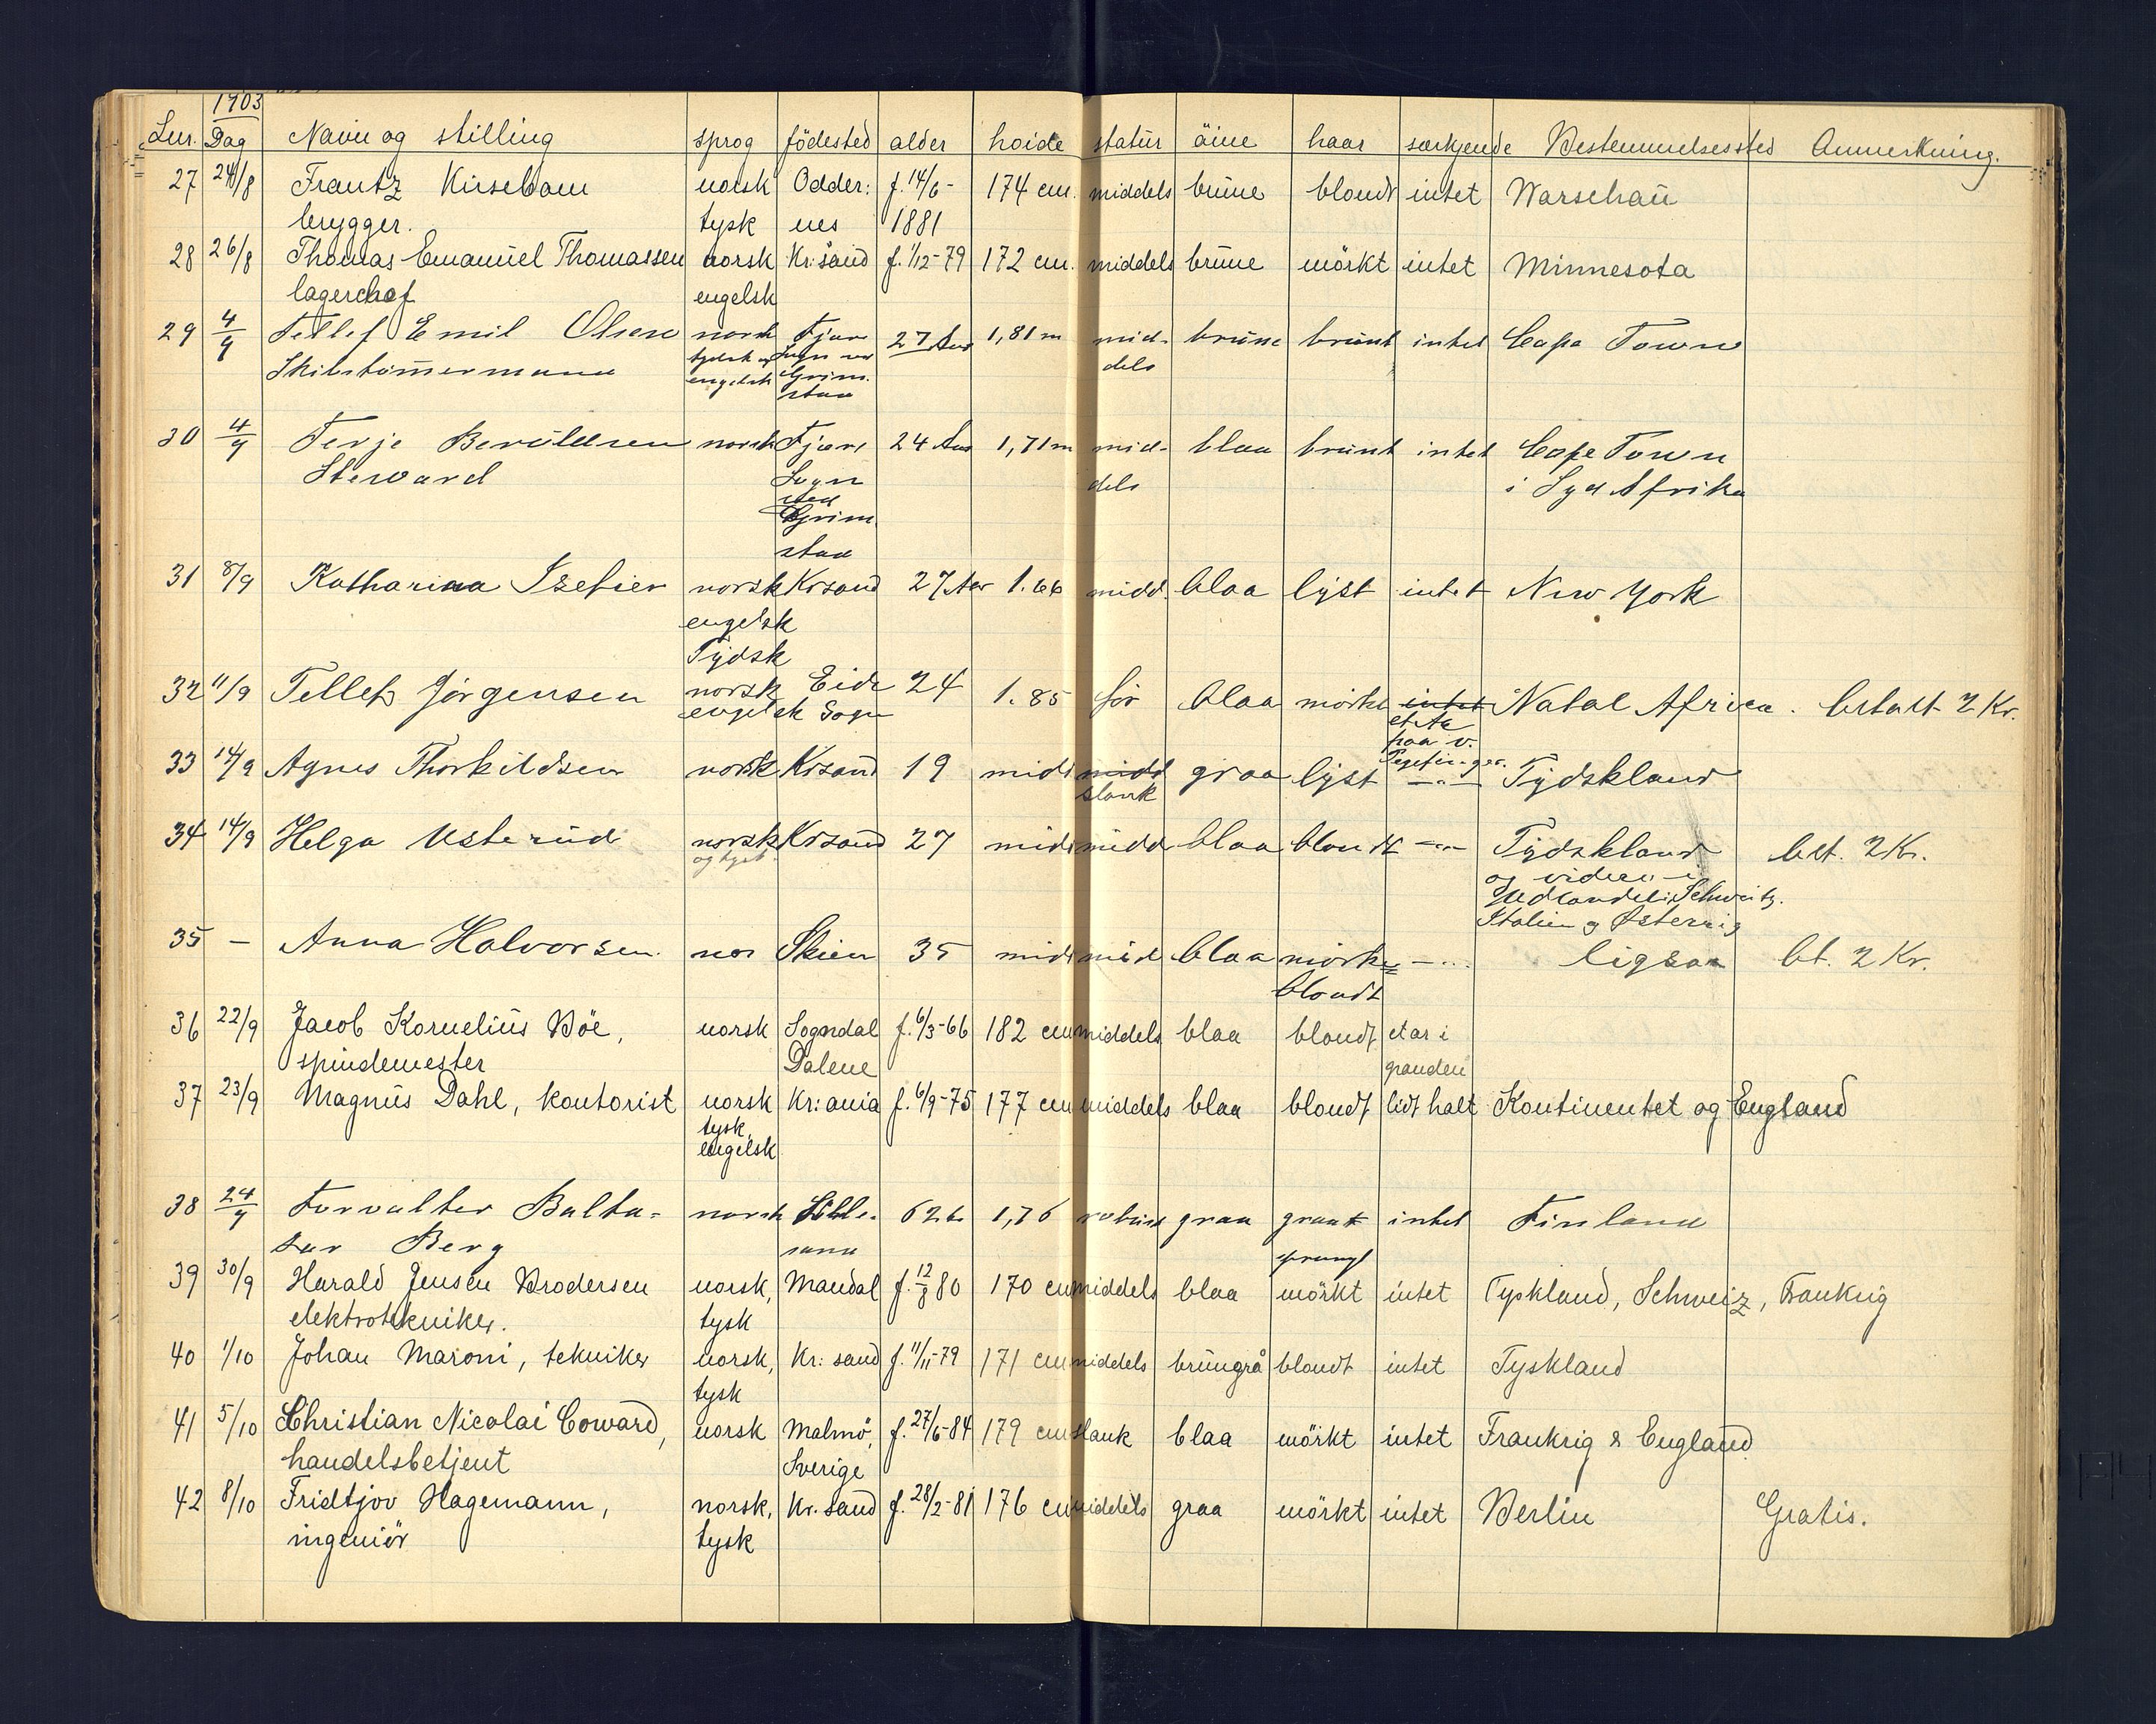 1903
Lnr. Dag Navn og stilling sprog födested alder hoide statur öine haar særkjende Bestemmelsessted Anmerkning.
27 24/8 Frantz Kirsebom norsk Odder: f. 14/6- 174 cm. middels brune blondt intet Warschau
brygger. tysk nes 1881
28 26/8 Thomas Emanuel Thomassen norsk Kr:sand f. 1/12-79 172 cm. middels brune mörkt intet Minnesota
lagerchef engelsk
29 4/9 Tellef Emil Olsen norsk Fjære 27 Aar 1,81 m mid- brune brunt intet Capa Town
Skibstømermand tydsk og Sogn ved dels
engelsk Grim-
stad
30 4/9 Terje Beruldsen norsk Fjære 24 Aar 1,71 m mid- blaa brunt intet Cape Town
Steward Sogn dels i Syd Afrika
ved
Grim
stad
31 8/9 Katharina norsk Krsand 27 Aar 1.66 midd. blaa lyst intet New York
engelsk
Tydsk
32 11/9 Tellef Jörgensen norsk Eide 24 1.85 för blaa mörke intet Natal Africa. betalt 2 Kr.
engelsk Sogn
paa v.
Pegefinger.
33 14/9 Agnes Thorkildsen norsk Krsand 19 midd midd graa lyst —"— Tydskland
slank
34 14/9 Helga Usterud norsk Krsand 27 midd midd blaa blondt —"— Tydskland bet. 2 Kr.
og tysk og videre i
Udlandet: Schweitz.
Italien og Østerrig
35 — Anna Halvorsen. nor Skien 35 midd mid blaa mörke —"— ligesaa bt. 2 Kr.
blondt
36 22/9 Jacob Kornelius Böe, norsk Sogndal f. 6/3-66 182 cm middels blaa blondt et ar i
spindemester Dalene panden
37 23/9 Magnus Dahl, kontorist norsk Kr:ania f. 6/9-75 177 cm middels blaa blondt lidt halt Kontinentet og England
tysk,
engelsk
38 24/9 Forvalter Balta= norsk Lille- 62 1,76 robust graa graat intet Finland
sar Berg sand sprengt
39 30/9 Harald Jensen Brodersen norsk, Mandal f. 12/8 80 170 cm middels blaa mörkt intet Tyskland, Schweiz, Frankrig
elektrotekniker. tysk
40 1/10 Johan Maroni, tekniker norsk, Kr: sand f. 11/11-79 171 cm middels brungrå blondt intet Tyskland
tysk
41 5/10 Christian Nicolai Coward, norsk Malmö, f. 27/6-84 179 cm slank blaa mörkt intet Frankrig & England
handelsbetjent Sverige
42 8/10 Fridtjov Hagemann, norsk, Kr. sand f. 28/2-81 176 cm middels graa mörkt intet Berlin Gratis.
ingeniör tysk